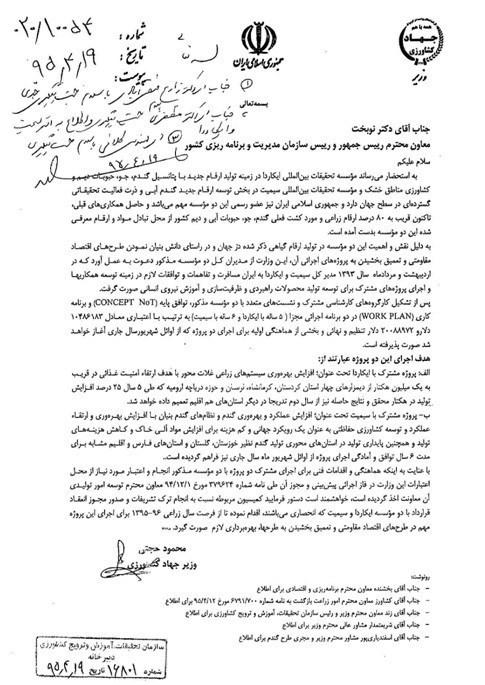 همه با هم
جهاد
کشاورزی
وزیر
جمهوری اسلامی ایران
شماره : ۰۲۰/۱۰۰۵۴
تاریخ : ۹۵,۴,۱۹
پیوست :
بسمه‌تعالی
جناب آقای دکتر نوبخت
معاون محترم رییس جمهور و رییس سازمان مدیریت و برنامه ریزی کشور
سلام علیکم
به استحضار می‌رساند مؤسسه تحقیقات بین‌المللی ایکاردا در زمینه تولید ارقام جدید با پتانسیل گندم، جو، حبوبات دیم و
کشاورزی مناطق خشک و مؤسسه تحقیقات بین‌المللی سیمیت در بخش توسعه ارقام جدید گندم آبی و ذرت فعالیت تحقیقاتی
گسترده‌ای در سطح جهان دارد و جمهوری اسلامی ایران نیز عضو رسمی این دو مؤسسه مهم می‌باشد و حاصل همکاری‌های قبلی،
تاکنون قریب به ۸۰ درصد ارقام زراعی و مورد کشت فعلی گندم، جو، حبوبات آبی و دیم کشور از محل تبادل مواد و ارقام معرفی
شده این دو مؤسسه بدست آمده است.
به دلیل نقش و اهمیت این دو مؤسسه در تولید ارقام گیاهی ذکر شده در جهان و در راستای دانش بنیان نمودن طرح‌های اقتصاد
مقاومتی و تعمیق بخشیدن به پروژه‌های اجرائی آن، این وزارت از مدیران کل دو مؤسسه مذکور دعوت به عمل آورد که در
اردیبهشت و مردادماه سال ۱۳۹۴ مدیر کل سیمیت و ایکاردا به ایران مسافرت و تفاهمات و توافقات لازم در زمینه توسعه همکاریها
و اجرای پروژه‌های مشترک برای توسعه تولید محصولات راهبردی و ظرفیت‌سازی و آموزش نیروی انسانی صورت گرفت.
پس از تشکیل کارگروه‌های کارشناسی مشترک و نشست‌های متعدد با دو مؤسسه مذکور، توافق پایه (CONCEPT NoT) و برنامه
کاری (WORK PLAN) در دو برنامه اجرائی مجزا (۵ ساله با ایکاردا و ۶ ساله با سیمیت) به ترتیب با اعتباری معادل ۱۰۴۸۶۱۸۳
دلارو ۲۰۰۸۸۹۷۲ دلار تنظیم و نهائی و بخشی از هماهنگی اولیه برای اجرای دو پروژه که از اوائل شهریورسال جاری آغاز خواهد
شد صورت پذیرفته است.
هدف اجرای این دو پروژه عبارتند از:
الف: پروژه مشترک با ایکاردا تحت عنوان: افزایش بهره‌وری سیستم‌های زراعی غلات محور با هدف ارتقاء امنیت غذائی در قریب
به یک میلیون هکتار از دیمزارهای چهار استان کردستان، کرمانشاه، لرستان و حوزه دریاچه ارومیه که طی ۵ سال ۲۵ درصد افزایش
تولید در هکتار محقق و نتایج حاصله نیز از سال دوم تدریجا در دیگر استان‌های هم اقلیم تعمیم داده خواهد شد.
ب- پروژه مشترک با سیمیت تحت عنوان: افزایش عملکرد و بهره‌وری گندم و نظام‌های گندم بنیان با افزایش بهره‌وری و ارتقاء
عملکرد و توسعه کشاورزی حفاظتی به عنوان یک رویکرد جهانی و کم هزینه برای افزایش مواد آلی خاک و کاهش هزینه‌های
تولید و همچنین پایداری تولید در استان‌های محوری تولید گندم نظیر خوزستان، گلستان و استان‌های فارس و اقلیم مشابه برای
مدت ۶ سال توافق و آمادگی اجرای پروژه از اوائل شهریور ماه سال جاری نیز فراهم گردیده است.
با عنایت به اینکه هماهنگی و اقدامات فنی برای اجرای مشترک دو پروژه با دو مؤسسه مذکور انجام و اعتبار مورد نیاز از محل
اعتبارات این وزارت در فاز اجرائی پیش‌بینی و مجوز آن طی نامه شماره ۳۷۹۶۲۴ مورخ ۹۴/۱۲/۱ معاون محترم توسعه امور تولیدی
آن معاونت اخذ گردیده است، خواهشمند است دستور فرمایید کمیسیون مربوطه نسبت به انجام ترک تشریفات و صدور مجوز انعقاد
قرارداد با دو مؤسسه ایکاردا و سیمیت که انحصاری می‌باشند، اقدام نموده تا از فرصت سال زراعی ۹۶-۱۳۹۵ برای اجرای این پروژه
مهم در طرح‌های اقتصاد مقاومتی و تعمیق بخشیدن به طرحها، بهره‌برداری لازم صورت گیرد.
محمود حجتی
وزیر جهاد کشاورزی
رونوشت:
- جناب آقای بخشنده معاون محترم برنامه‌ریزی و اقتصادی برای اطلاع
- جناب آقای کشاورز معاون محترم امور زراعت بازگشت به نامه شماره ۶۷۹۱/۷۰۰ مورخ ۹۵/۴/۱۲ برای اطلاع
- جناب آقای زند معاون محترم وزیر و رئیس سازمان تحقیقات، آموزش و ترویج کشاورزی برای اطلاع
- جناب آقای شریعتمدار مشاور عالی محترم وزیر برای اطلاع
- جناب آقای اسفندیاری‌پور مشاور محترم وزیر و مجری طرح گندم برای اطلاع
سازمان تحقیقات، آموزش و ترویج کشاورزی
دبیرخانه
شماره ۱۶۸۰۱ تاریخ ۹۵,۴,۱۹